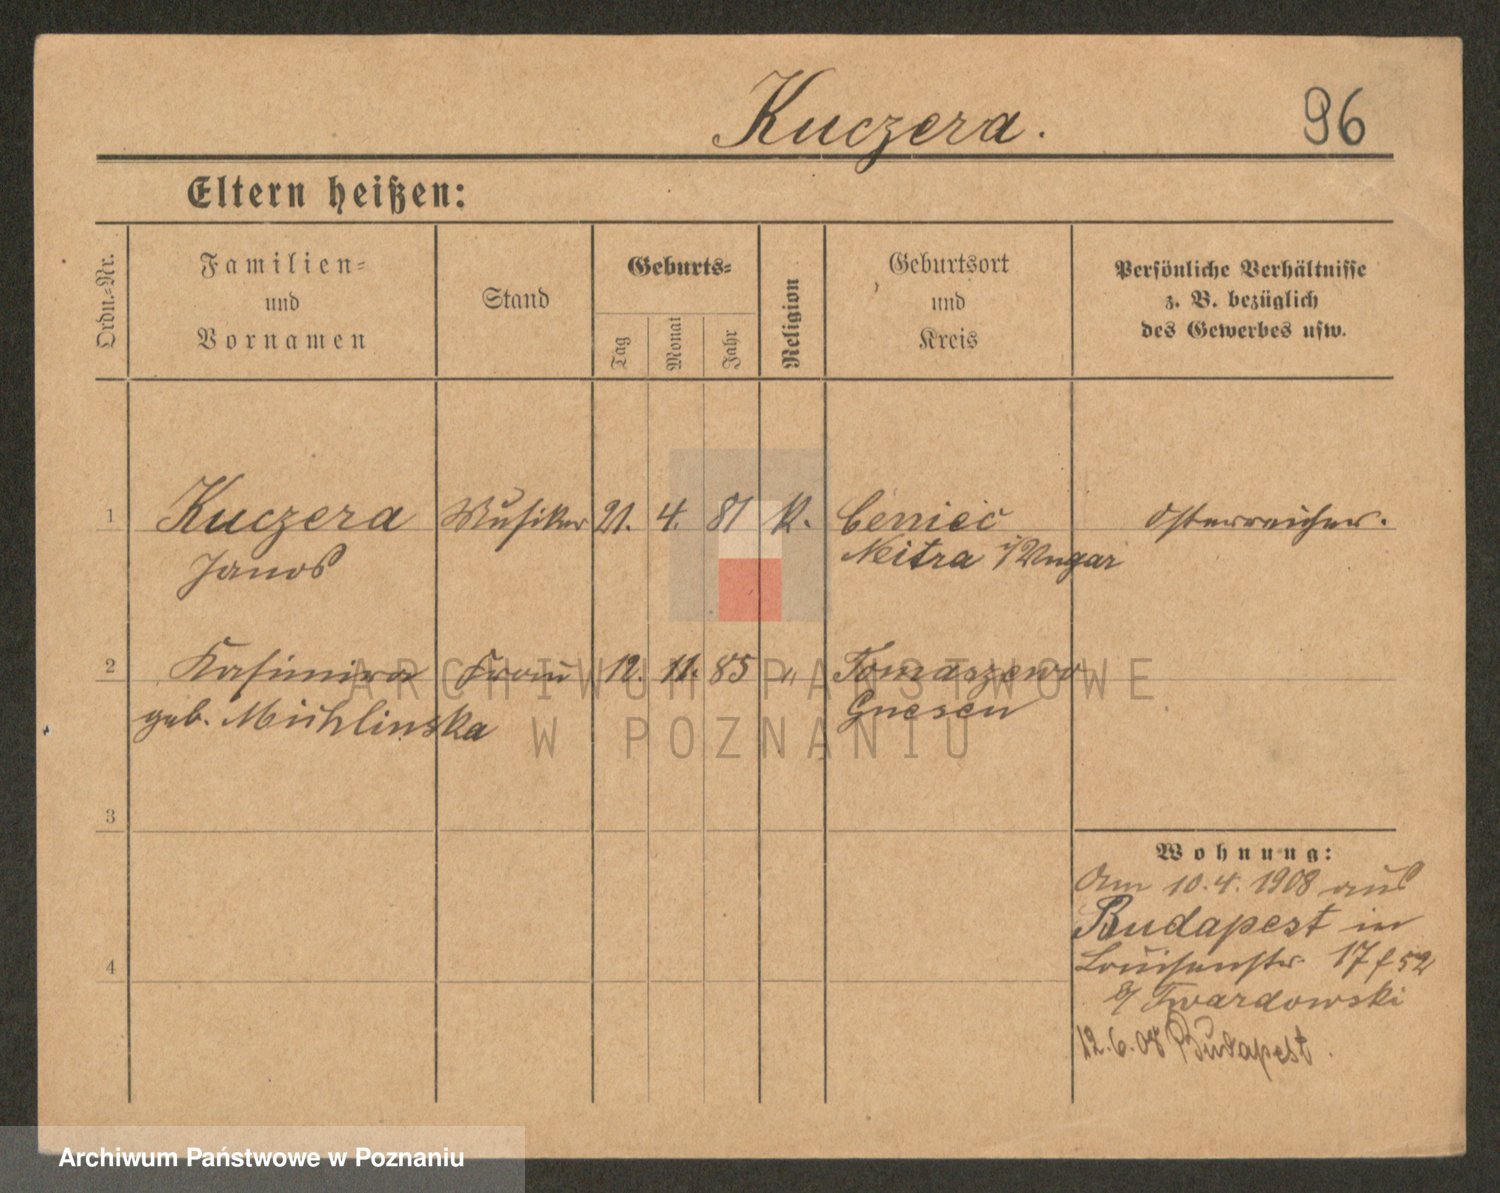 Kuczera. 96
Eltern heißen:
Ordn.-Nr.
Familien-
und
Vornamen
Stand
Geburts-
Tag
Monat
Jahr
Religion
Geburtsort
und
Kreis
Persönliche Verhältnisse
z. B. bezüglich
des Gewerbes usw.
1 Kuczera Musiker 21. 4. 81 K. Österreicher.
Janos Neitra i/Ungar
2 Kasimira Frau 12. 11. 85 " Tomaszewo
geb. Mühlinska Gnesen
3
4
Wohnung:
Am 10.4.1908 aus
Budapest in
Louisenstr. 17
b/ Twardowski
12.6.08 Budapest.
ARCHIWUM PAŃSTWOWE
W POZNANIU
Archiwum Państwowe w Poznaniu